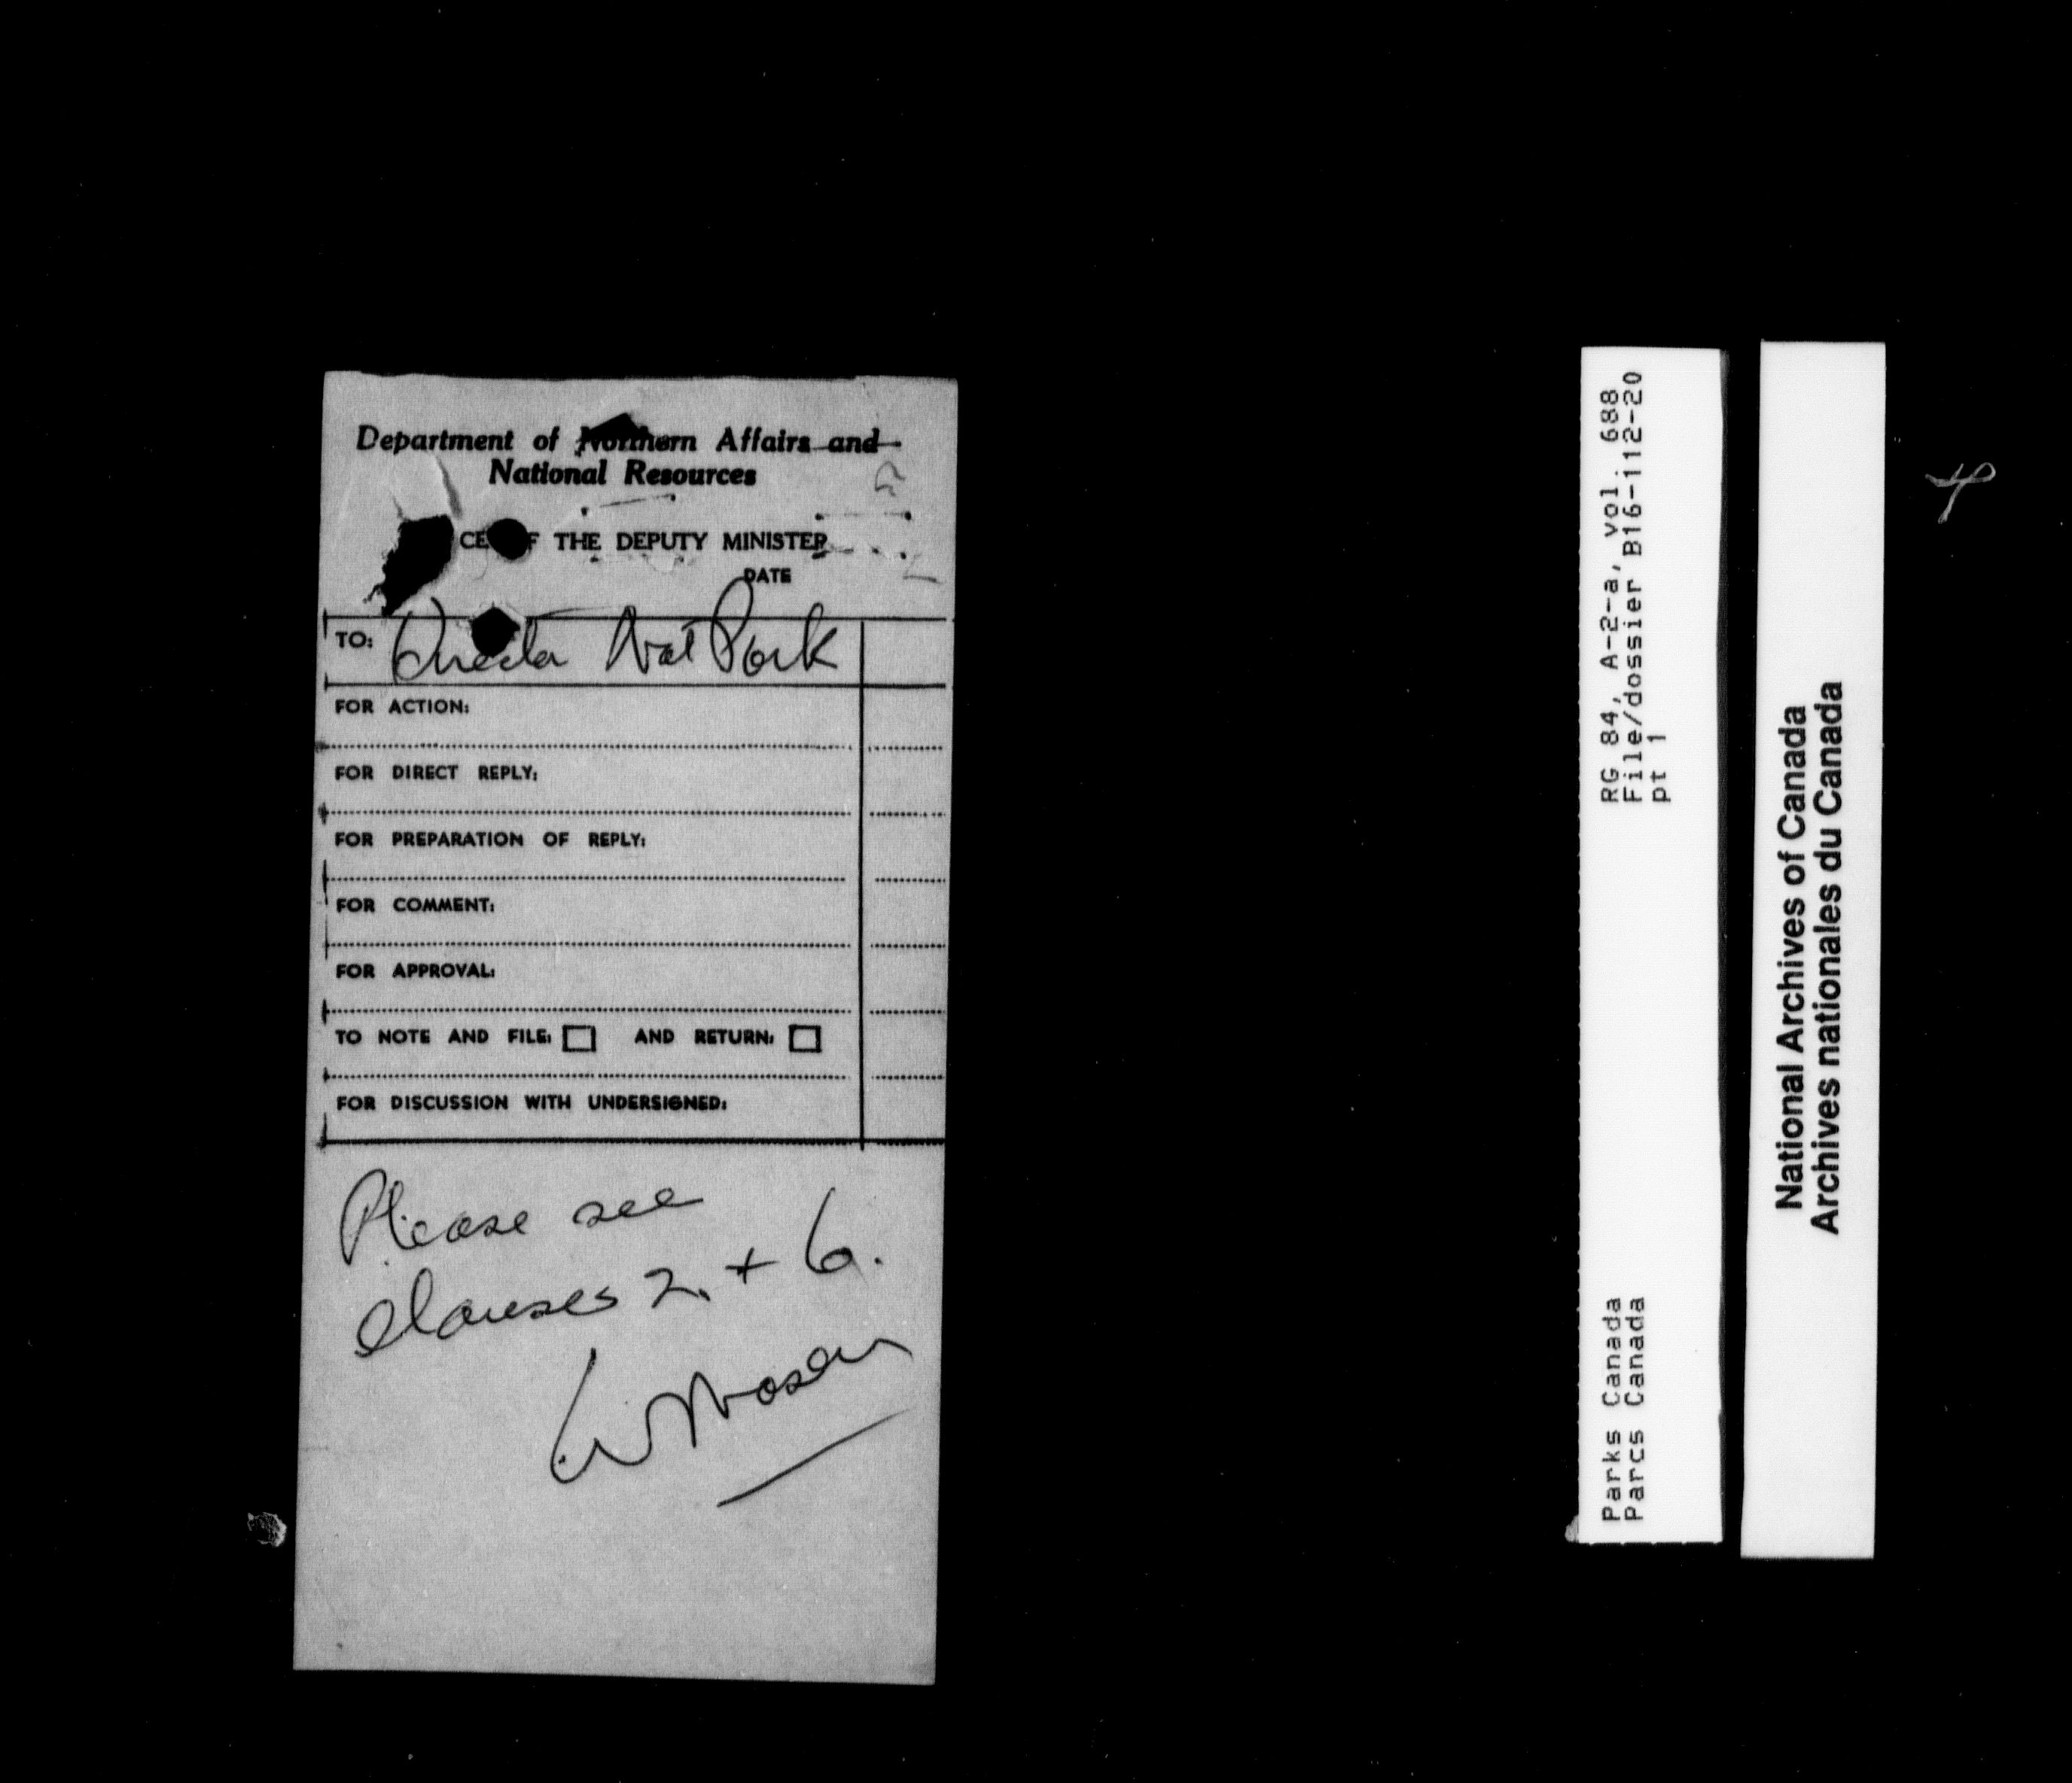 Department of Northern Affairs and
National Resources
CE OF THE DEPUTY MINISTER
DATE
TO: Director Nat Park
FOR ACTION:
FOR DIRECT REPLY:
FOR PREPARATION OF REPLY:
FOR COMMENT:
FOR APPROVAL:
TO NOTE AND FILE: AND RETURN:
FOR DISCUSSION WITH UNDERSIGNED:
Please see
clauses 2. + 6.
RG 84, A-2-a, vol. 688
File/dossier B16-112-20
pt 1
Parks Canada
Parcs Canada
National Archives of Canada
Archives nationales du Canada